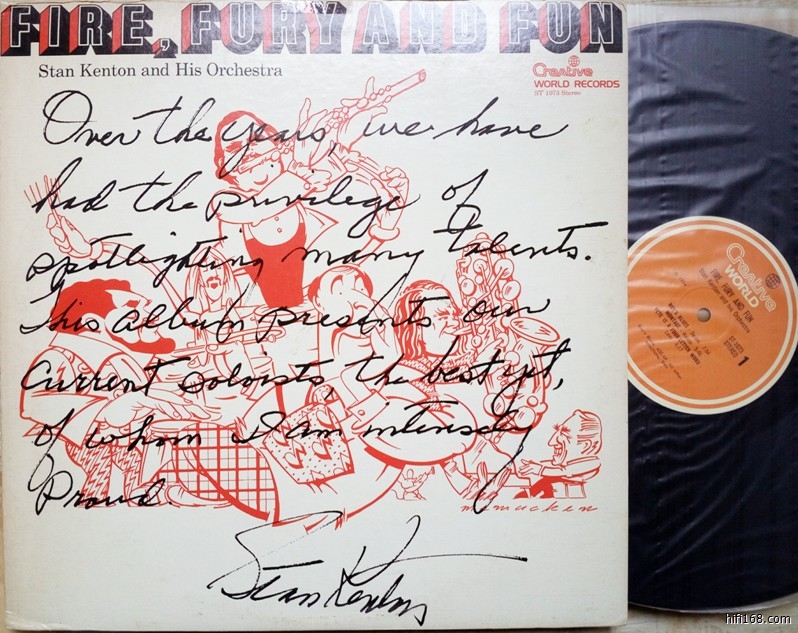 FIRE, FURY AND FUN
Stan Kenton and His Orchestra
Creative
WORLD RECORDS
ST 1073 Stereo
Over the years, we have
had the privilege of
spotlighting many talents.
This album presents our
current soloists, the best yet,
of whom I am intensely
Proud.
Stan Kenton
Creative
WORLD
FIRE, FURY AND FUN
Stan Kenton and his Orchestra
ST 1073
STEREO
1
hifi168.com